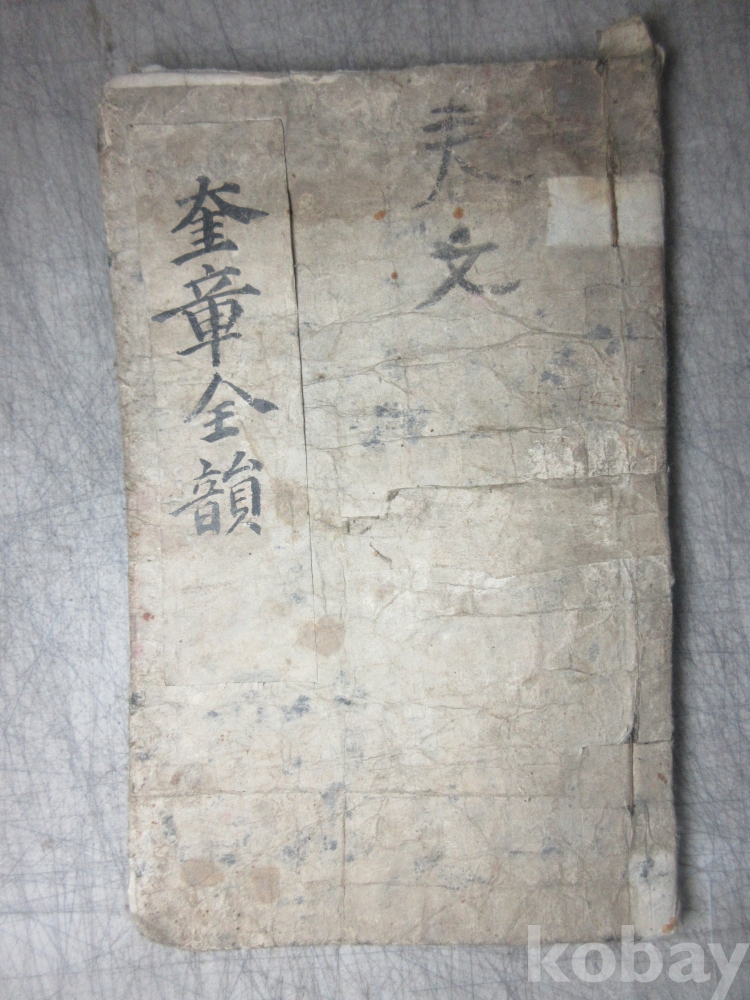 文
奎章全韻
kobay